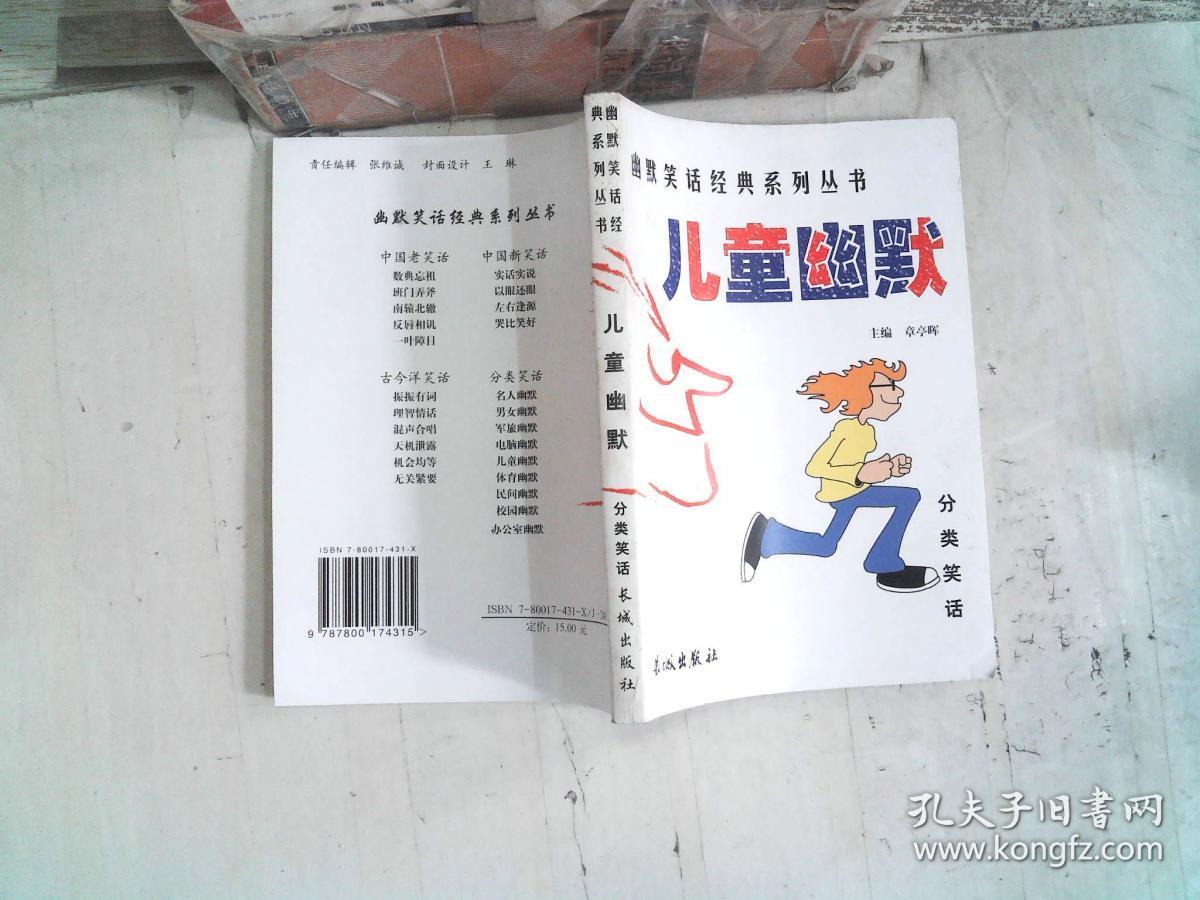 责任编辑 张维诚 封面设计 王 琳
幽默笑话经典系列丛书
中国老笑话
数典忘祖
班门弄斧
南辕北辙
反唇相讥
一叶障目
中国新笑话
实话实说
以眼还眼
左右逢源
哭比笑好
古今洋笑话
振振有词
理智情话
混声合唱
天机泄露
机会均等
无关紧要
分类笑话
名人幽默
男女幽默
军旅幽默
电脑幽默
儿童幽默
体育幽默
民间幽默
校园幽默
办公室幽默
ISBN 7-80017-431-X
9 787800 174315
ISBN 7-80017-431-X/I·
定价：15.00 元
幽默笑话经典系列丛书
儿童幽默
分类笑话
长城出版社
幽默笑话经典系列丛书
儿童幽默
主编 章亭晖
分类笑话
长城出版社
孔夫子旧书网
www.kongfz.com